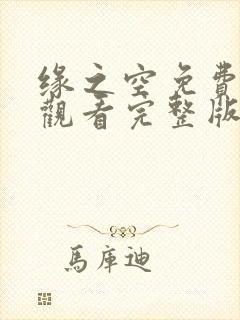 緣之空免費
觀看完整版
馬庫迪